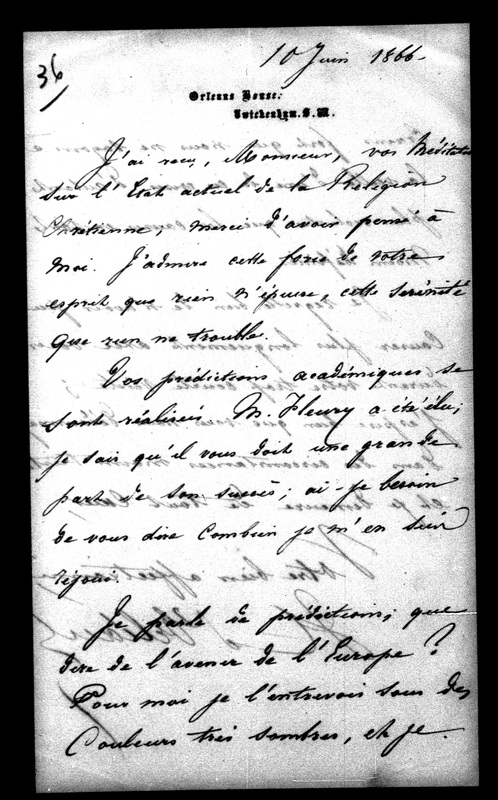 36
10 Juin 1866-
Orleans House.
Twickenham. S.W.
J'ai reçu, Monsieur, vos Méditations
sur l'Etat actuel de la Religion
Chrétienne, merci d'avoir pensé à
moi. J'admire cette force de votre
esprit que rien n'épuise, cette sérénité
que rien ne trouble.
Vos prédictions académiques se
sont réalisées, M. Fleury a été élu;
je sais qu'il vous doit une grande
part de son succès; ai-je besoin
de vous dire combien je m'en suis
réjoui.
Je parle de prédictions; que
dire de l'avenir de l'Europe ?
Pour moi je l'entrevois sous des
Couleurs très sombres, et je